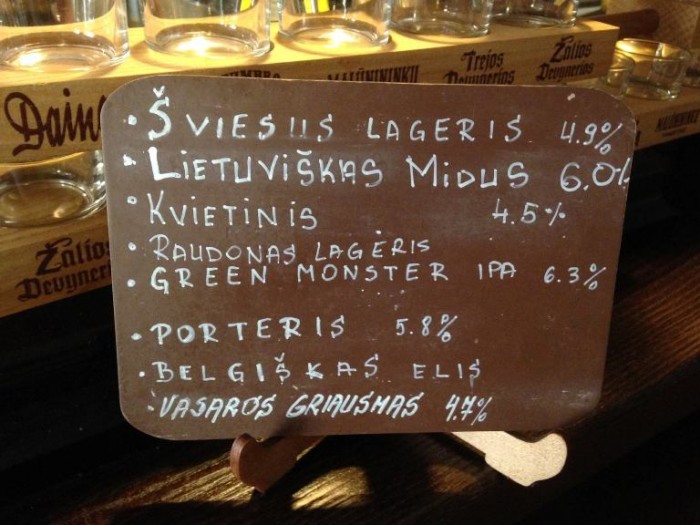 Trejos
Devynerios
Žalios
Devynerios
Dain
· ŠVIESUS LAGERIS 4.9%
· LIETUVIŠKAS MIDUS 6.0%
· KVIETINIS 4.5%
· RAUDONAS LAGERIS
· GREEN MONSTER IPA 6.3%
· PORTERIS 5.8%
· BELGIŠKAS ELIS
· VASAROS GRIAUSMAS 4.7%
Žalios
Devynerios